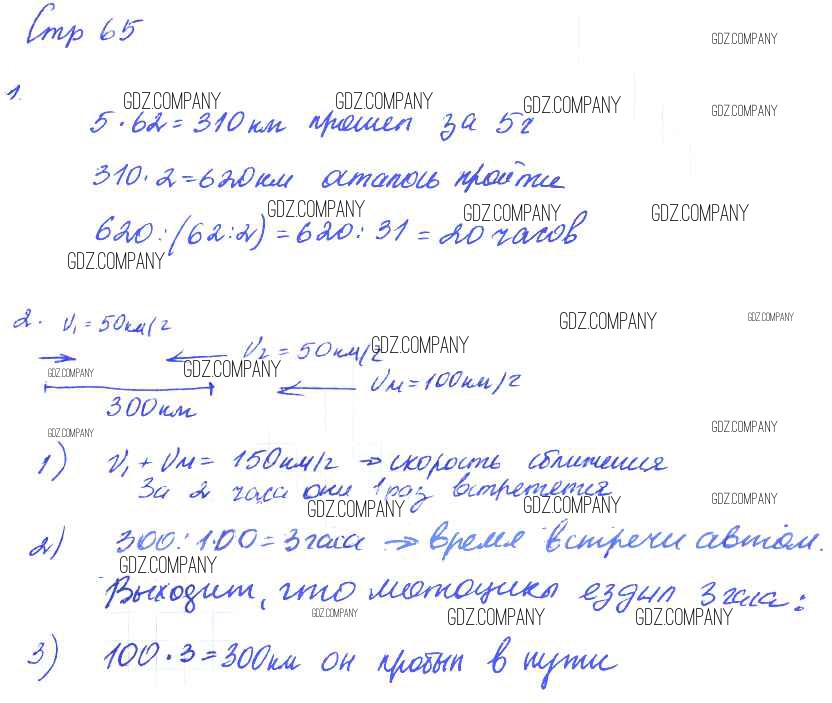 Стр 65
GDZ.COMPANY
1.
GDZ.COMPANY GDZ.COMPANY GDZ.COMPANY GDZ.COMPANY
5 · 62 = 310 км прошел за 5 ч
310 · 2 = 620 км осталось пройти
GDZ.COMPANY GDZ.COMPANY GDZ.COMPANY
620 : (62 : 2) = 620 : 31 = 20 часов
GDZ.COMPANY
2. V₁ = 50 км/ч
GDZ.COMPANY GDZ.COMPANY
V₂ = 50 км/ч GDZ.COMPANY
GDZ.COMPANY GDZ.COMPANY
Vм = 100 км/ч
300 км
GDZ.COMPANY GDZ.COMPANY
1) V₁ + Vм = 150 км/ч → скорость сближения
За 2 часа они 1 раз встретется
GDZ.COMPANY GDZ.COMPANY GDZ.COMPANY
2) 300 : 100 = 3 часа → время встречи автом.
GDZ.COMPANY
Выходит, что мотоцикл ездил 3 часа:
GDZ.COMPANY GDZ.COMPANY GDZ.COMPANY
3) 100 · 3 = 300 км он пробыл в пути